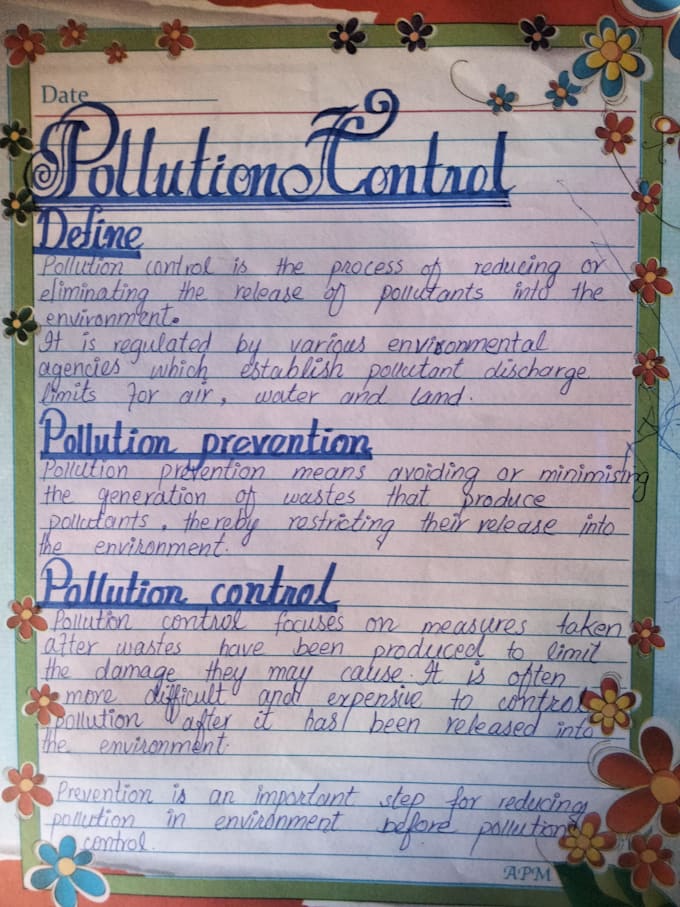 Date
Pollution Control
Define
Pollution control is the process of reducing or
eliminating the release of pollutants into the
environment.
It is regulated by various environmental
agencies which establish pollutant discharge
limits for air, water and land.
Pollution prevention
Pollution prevention means avoiding or minimising
the generation of wastes that produce
pollutants, thereby restricting their release into
the environment.
Pollution control
Pollution control focuses on measures taken
after wastes have been produced to limit
the damage they may cause. It is often
more difficult and expensive to control
pollution after it has been released into
the environment.
Prevention is an important step for reducing
pollution in environment before pollution
control.
APM